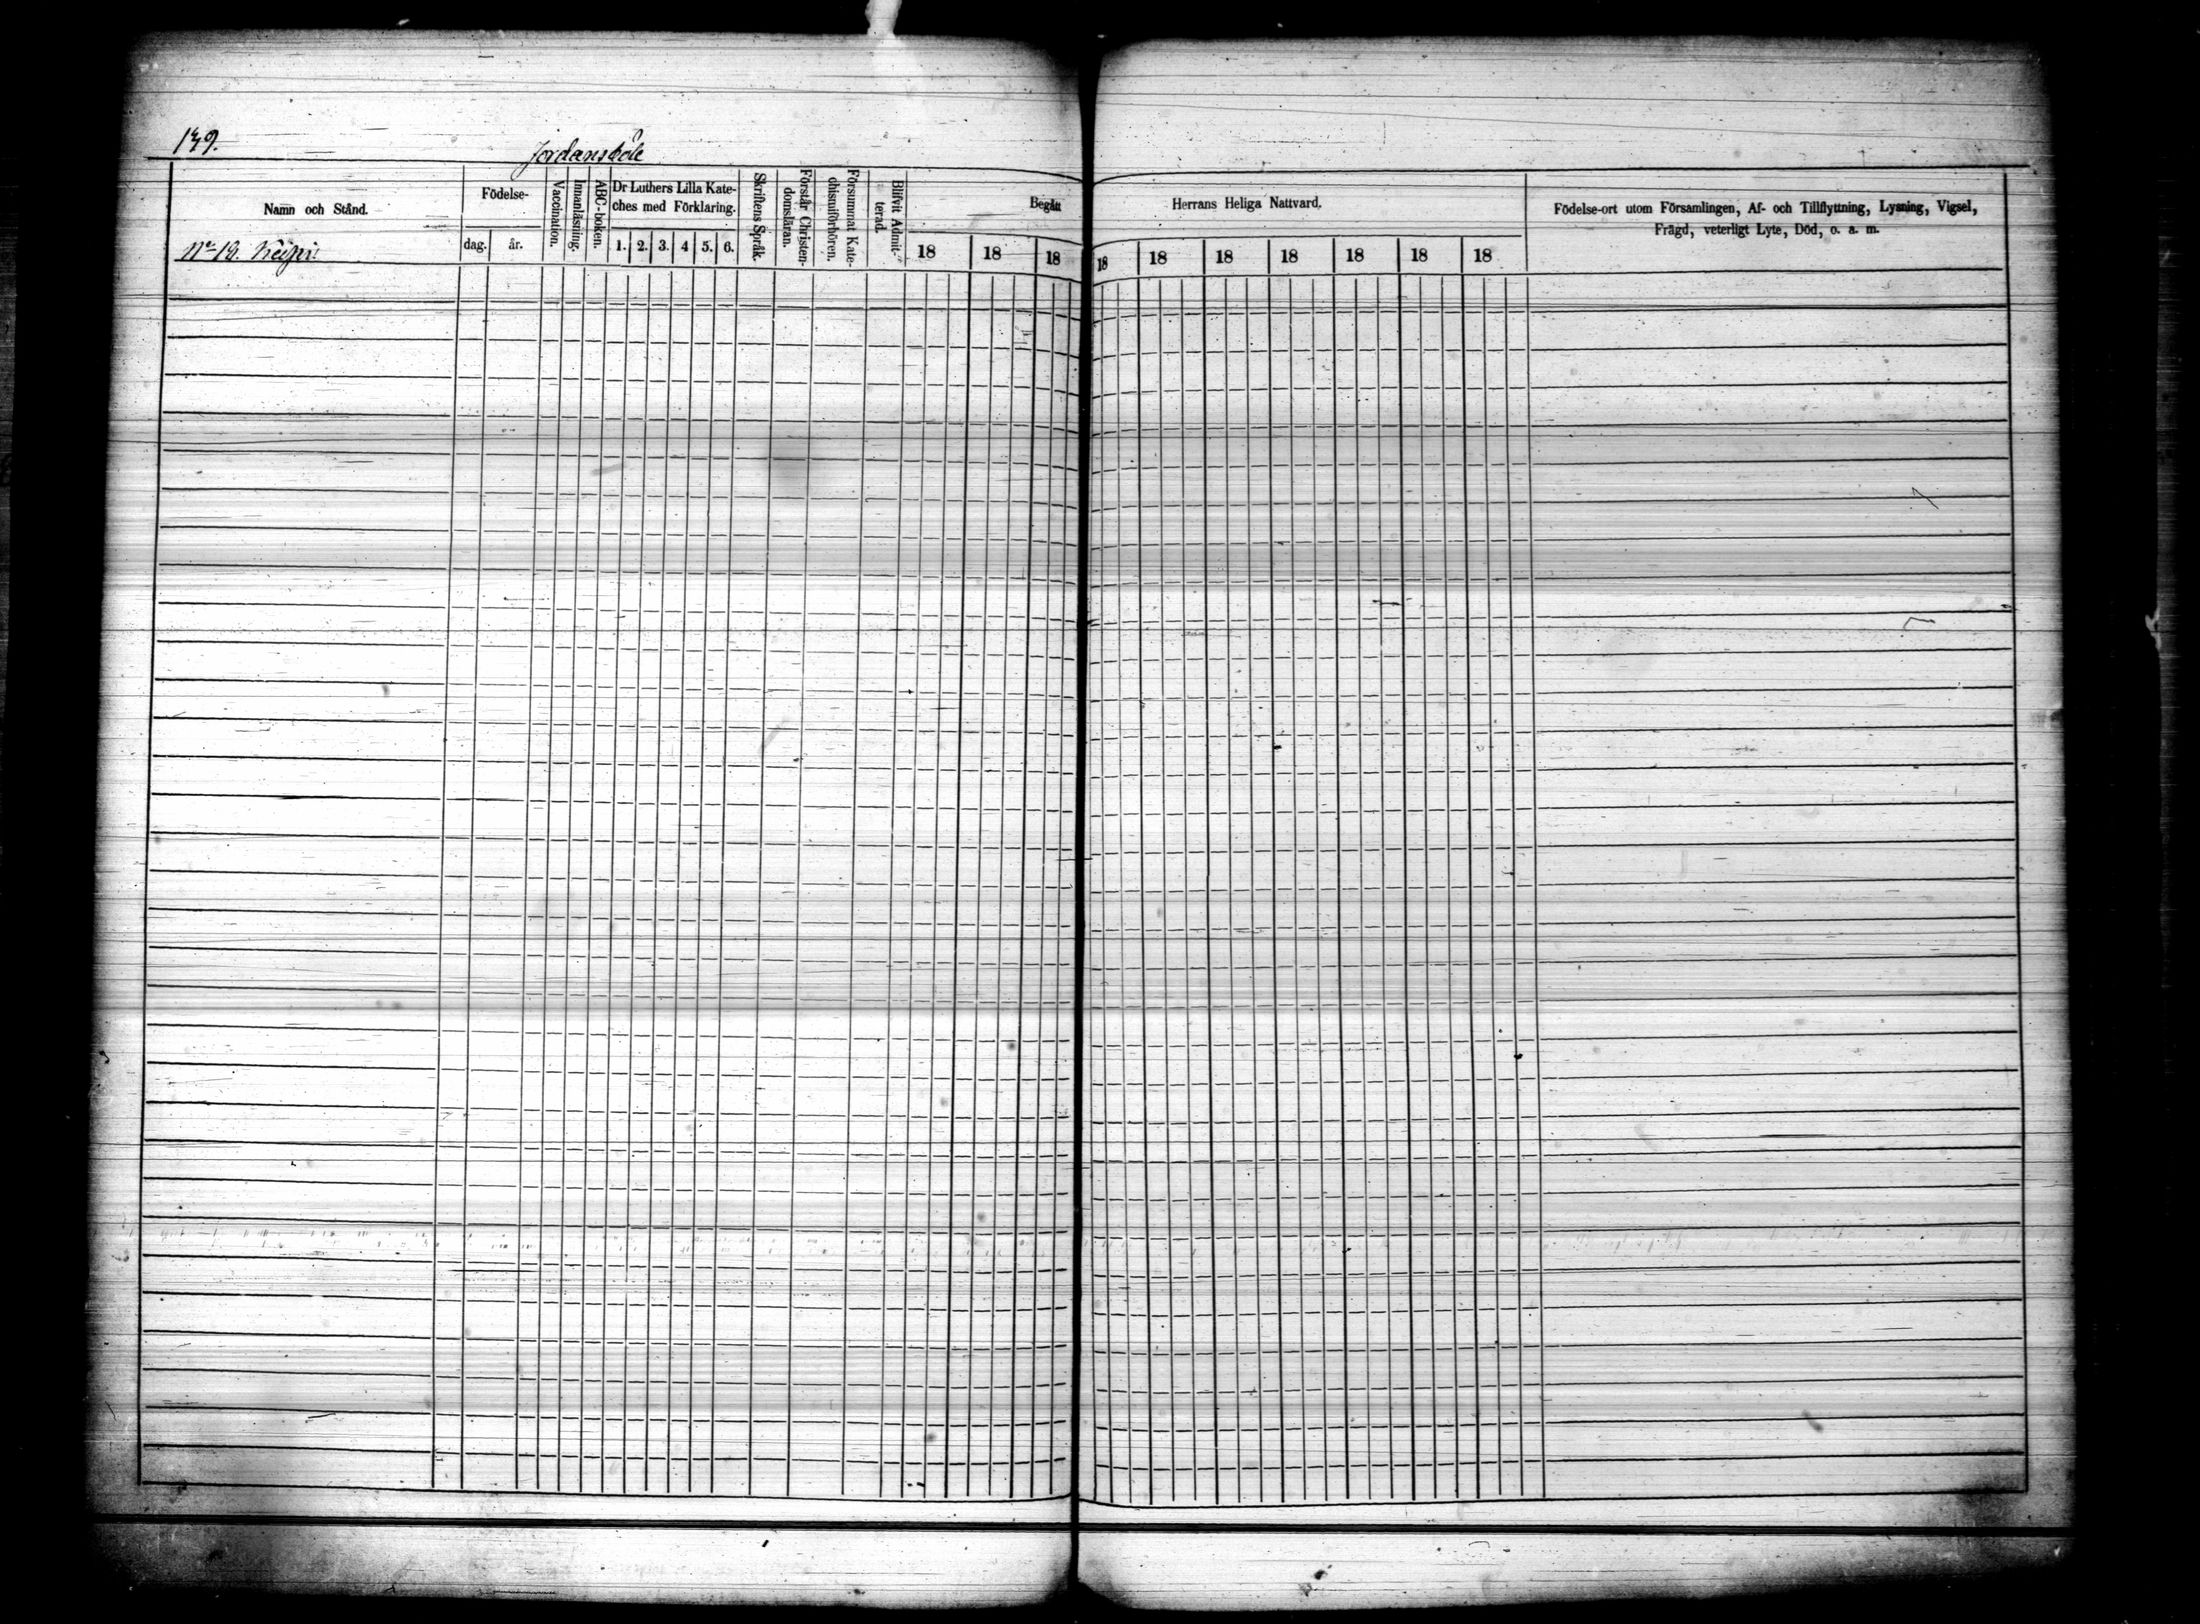 149.
Jordansböle
Namn och Stånd.
Födelse-
dag.
år.
Vaccination.
Innanläsning.
ABC-boken.
Dr Luthers Lilla Kate-
ches med Förklaring.
1. 2. 3. 4 5. 6.
Skriftens Språk.
Förstår Christen-
domsläran.
Försummat Kate-
chismiförhören.
Blifvit Admit-
terad.
Begått
18 18 18
Herrans Heliga Nattvard.
18 18 18 18 18 18 18
Födelse-ort utom Församlingen, Af- och Tillflyttning, Lysning, Vigsel,
Frägd, veterligt Lyte, Död, o. a. m.
No 10.